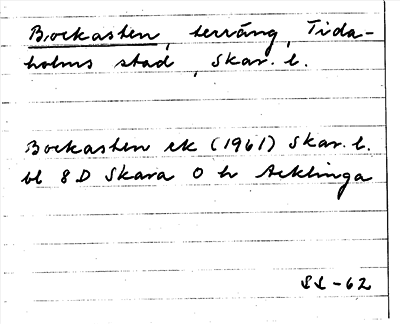 Bockasten, terräng, Tida-
holms stad, Skar. l.
Bockasten ek (1961) Skar. l.
bl 8 D Skara O h Acklinga
SL-62